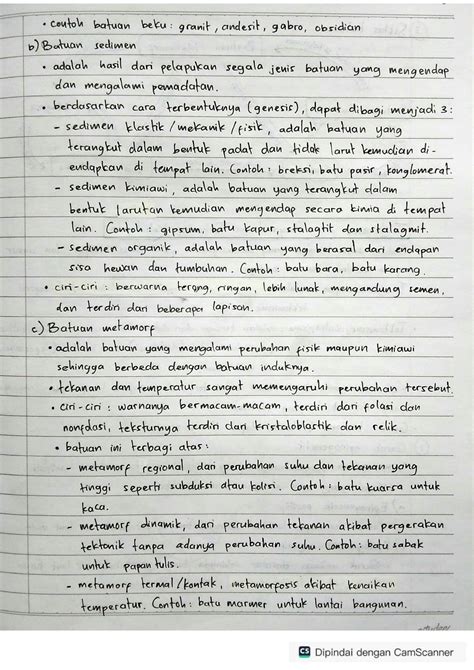 • contoh batuan beku : granit, andesit, gabro, obsidian
b) Batuan sedimen
• adalah hasil dari pelapukan segala jenis batuan yang mengendap
dan mengalami pemadatan.
• berdasarkan cara terbentuknya (genesis), dapat dibagi menjadi 3 :
- sedimen klastik / mekanik / fisik, adalah batuan yang
terangkut dalam bentuk padat dan tidak larut kemudian di-
endapkan di tempat lain. Contoh : breksi, batu pasir, konglomerat.
- sedimen kimiawi, adalah batuan yang terangkut dalam
bentuk larutan kemudian mengendap secara kimia di tempat
lain. Contoh : gipsum, batu kapur, stalagtit dan stalagmit.
- sedimen organik, adalah batuan yang berasal dari endapan
sisa hewan dan tumbuhan. Contoh : batu bara, batu karang.
• ciri-ciri : berwarna terang, ringan, lebih lunak, mengandung semen,
dan terdiri dari beberapa lapisan.
c) Batuan metamorf
• adalah batuan yang mengalami perubahan fisik maupun kimiawi
sehingga berbeda dengan batuan induknya.
• tekanan dan temperatur sangat memengaruhi perubahan tersebut.
• ciri-ciri : warnanya bermacam-macam, terdiri dari folasi dan
nonfolasi, teksturnya terdiri dari kristaloblastik dan relik.
• batuan ini terbagi atas :
- metamorf regional, dari perubahan suhu dan tekanan yang
tinggi seperti subduksi atau kolisi. Contoh : batu kuarsa untuk
kaca.
- metamorf dinamik, dari perubahan tekanan akibat pergerakan
tektonik tanpa adanya perubahan suhu. Contoh : batu sabak
untuk papan tulis.
- metamorf termal / kontak, metamorfosis akibat kenaikan
temperatur. Contoh : batu marmer untuk lantai bangunan.
CS Dipindai dengan CamScanner